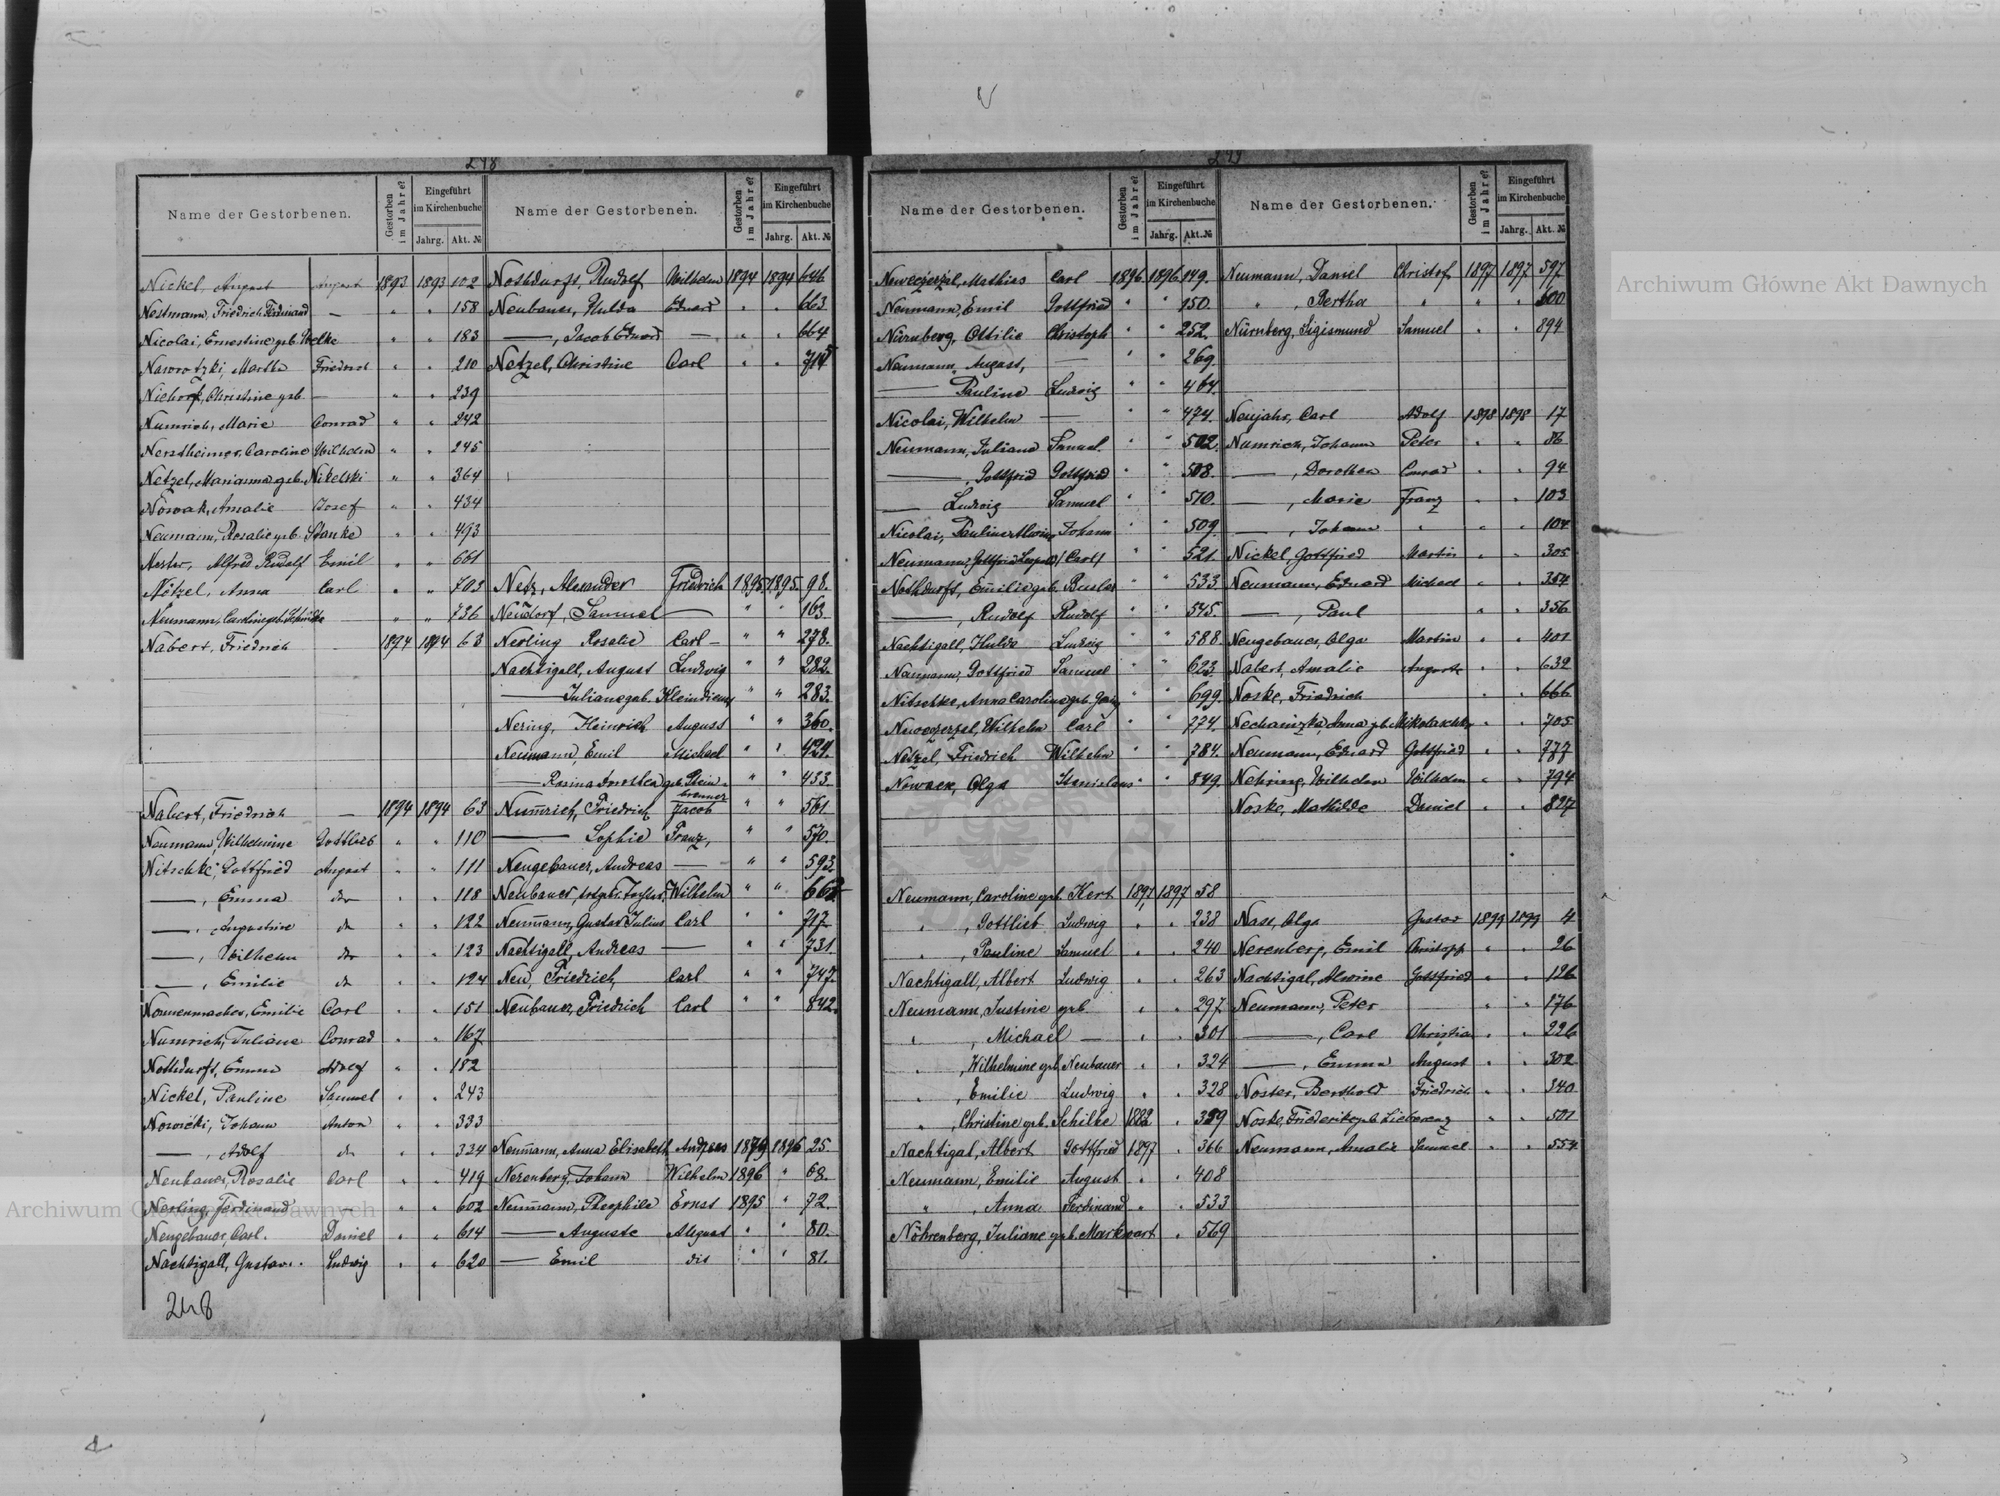 248
Name der Gestorbenen. Gestorben im Jahre? Eingeführt im Kirchenbuche Jahrg. Akt. №
Nickel, August August 1893 1893 102
Nestmann, Friedrich Ferdinand — " " 158
Nicolai, Ernestine geb. " " 183
Nawrotzki, Martha Friedrich " " 210
Christine geb. — " " 239
Numrich, Marie Conrad " " 242
Nerstheimer, Caroline Wilhelm " " 245
Netzel, Marianna geb. Nikelski " " 364
Nowak, Amalie Josef " " 434
Neumann, Rosalie geb. Stanke " " 493
Nester, Alfred Rudolf Emil " " 661
Nötzel, Anna Carl " " 703
Neumann, Caroline geb. Schmidtke " " 736
Nabert, Friedrich — 1894 1894 63
Nabert, Friedrich — 1894 1894 63
Neumann, Wilhelmine Gottlieb " " 110
Nitschke, Gottfried August " " 111
—, Emma dto " " 118
—, Augustine do " " 122
—, Wilhelm dto " " 123
—, Emilie do " " 124
Nonnenmacher, Emilie Carl " " 151
Numrich, Juliane Conrad " " 167
Nothdurft, Emma Adolf " " 182
Nickel, Pauline Samuel " " 243
Nowicki, Johann Anton " " 333
—, Adolf do " " 334
Neubauer, Rosalie Carl " " 419
Nerling, Ferdinand — " " 602
Neugebauer, Carl. Daniel " " 614
Nachtigall, Gustav. Ludwig " " 620
248
Name der Gestorbenen. Gestorben im Jahre? Eingeführt im Kirchenbuche Jahrg. Akt. №
Nothdurft, Rudolf Wilhelm 1894 1894 646
Neubauer, Hulda Eduard " " 663
—, Jacob Eduard — " " 664
Netzel, Christine Carl " " 715
Netz, Alexander Friedrich 1895 1895 98.
Neudorf, Samuel — " " 163.
Nerling Rosalie Carl " " 278.
Nachtigall, August Ludwig " " 282.
— Juliane geb. Kleindienst " " 283.
Nering, Heinrich August " " 360.
Neumann, Emil Michael " " 424.
— Rosina Dorothea geb. Stein- " " 433.
kremer
Numrich, Friedrich Jacob " " 561
— Sophie Franz, " " 570.
Neugebauer, Andreas — " " 593.
Neubauer, Wilhelm " " 662
Neumann, Gustav Julius Carl " " 717.
Nachtigall, Andreas — " " 731.
Neu, Friedrich, Carl " " 747.
Neubauer, Friedrich Carl " " 842.
Neumann, Anna Elisabeth Andreas 1879 1896 25.
Nerenberg, Johann Wilhelm 1896 " 68.
Neumann, Theophile Ernst 1895 " 72.
— Auguste August " " 80.
— Emil dto " " 81.
249
Name der Gestorbenen. Gestorben im Jahre? Eingeführt im Kirchenbuche Jahrg. Akt. №
Mathias Carl 1896 1896 149.
Neumann, Emil Gottfried " " 150.
Nürnberg, Ottilie Christoph " " 252.
Neumann, August, — " " 269.
— Pauline Ludwig " " 464.
Nicolai, Wilhelm — " " 474.
Neumann, Juliana Samuel " " 502.
—, Gottfried Gottfried " " 508.
— Ludwig Samuel " " 510.
Nicolai, Pauline Alwine Johann " " 509.
Neumann, Gottfried Leopold (Carl) " " 521.
Nothdurft, Emilie geb. Busler " " 533
—, Rudolf Rudolf " " 575.
Nachtigall, Hulda Ludwig " " 588
Naumann, Gottfried Samuel " " 623
Nitschke, Anna Caroline geb. " " 699.
Wilhelm Carl " " 774.
Netzel, Friedrich Wilhelm " " 784.
Nowack, Olga Stanislaus " " 849.
Neumann, Caroline geb. Hert 1897 1897 58
" , Gottlieb Ludwig " " 238
" , Pauline Samuel " " 240
Nachtigall, Albert Ludwig " " 263
Neumann, Justine geb. " " 297
" , Michael — " " 301
" , Wilhelmine geb. Neubauer " " 324
" , Emilie Ludwig " " 328
" , Christine geb. Schilke 1882 " 329
Nachtigal, Albert Gottfried 1897 " 366
Neumann, Emilie August " " 408
" , Anna Ferdinand " " 533
Nöhrenberg, Juliane geb. Markwart " 569
Name der Gestorbenen. Gestorben im Jahre? Eingeführt im Kirchenbuche Jahrg. Akt. №
Neumann, Daniel Christof 1897 1897 597
" , Bertha " " " 600
Nürnberg, Sigismund Samuel " " 894
Neujahr, Carl Adolf 1898 1898 17
Numrich, Johann Peter " " 86
—, Dorothea Conrad " " 94
—, Marie Franz " " 103
—, Johann " " " 104
Nickel, Gottfried Martin " " 305
Neumann, Eduard Michael " " 354
—, Paul " " 356
Neugebauer, Olga Martin " " 401
Nabert, Amalie August " " 632
Noske, Friedrich " " 666
Anna geb. Mikolaschke " " 705
Neumann, Eduard Gottfried " " 777
Nehring, Wilhelm Wilhelm " " 794
Noske, Mathilde Daniel " " 827
Nass, Olga Gustav 1899 1899 4
Nerenberg, Emil Christoph " " 26
Nachtigal, Alwine Gottfried " " 126
Neumann, Peter " " 176
—, Carl Christian " " 226
—, Emma August " " 302
Noster, Berthold Friedrich " " 340
Noske, Friederike geb. " " 501
Neumann, Amalie Samuel " " 554
Archiwum Główne Akt Dawnych
Archiwum Główne Akt Dawnych